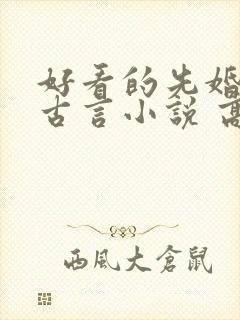 好看的先婚
古言小说 高
西風大倉鼠